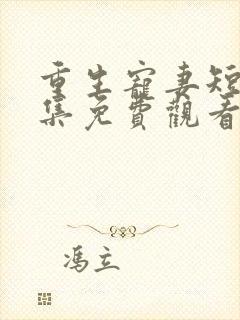 重生寵妻短
集免費觀看
馮立